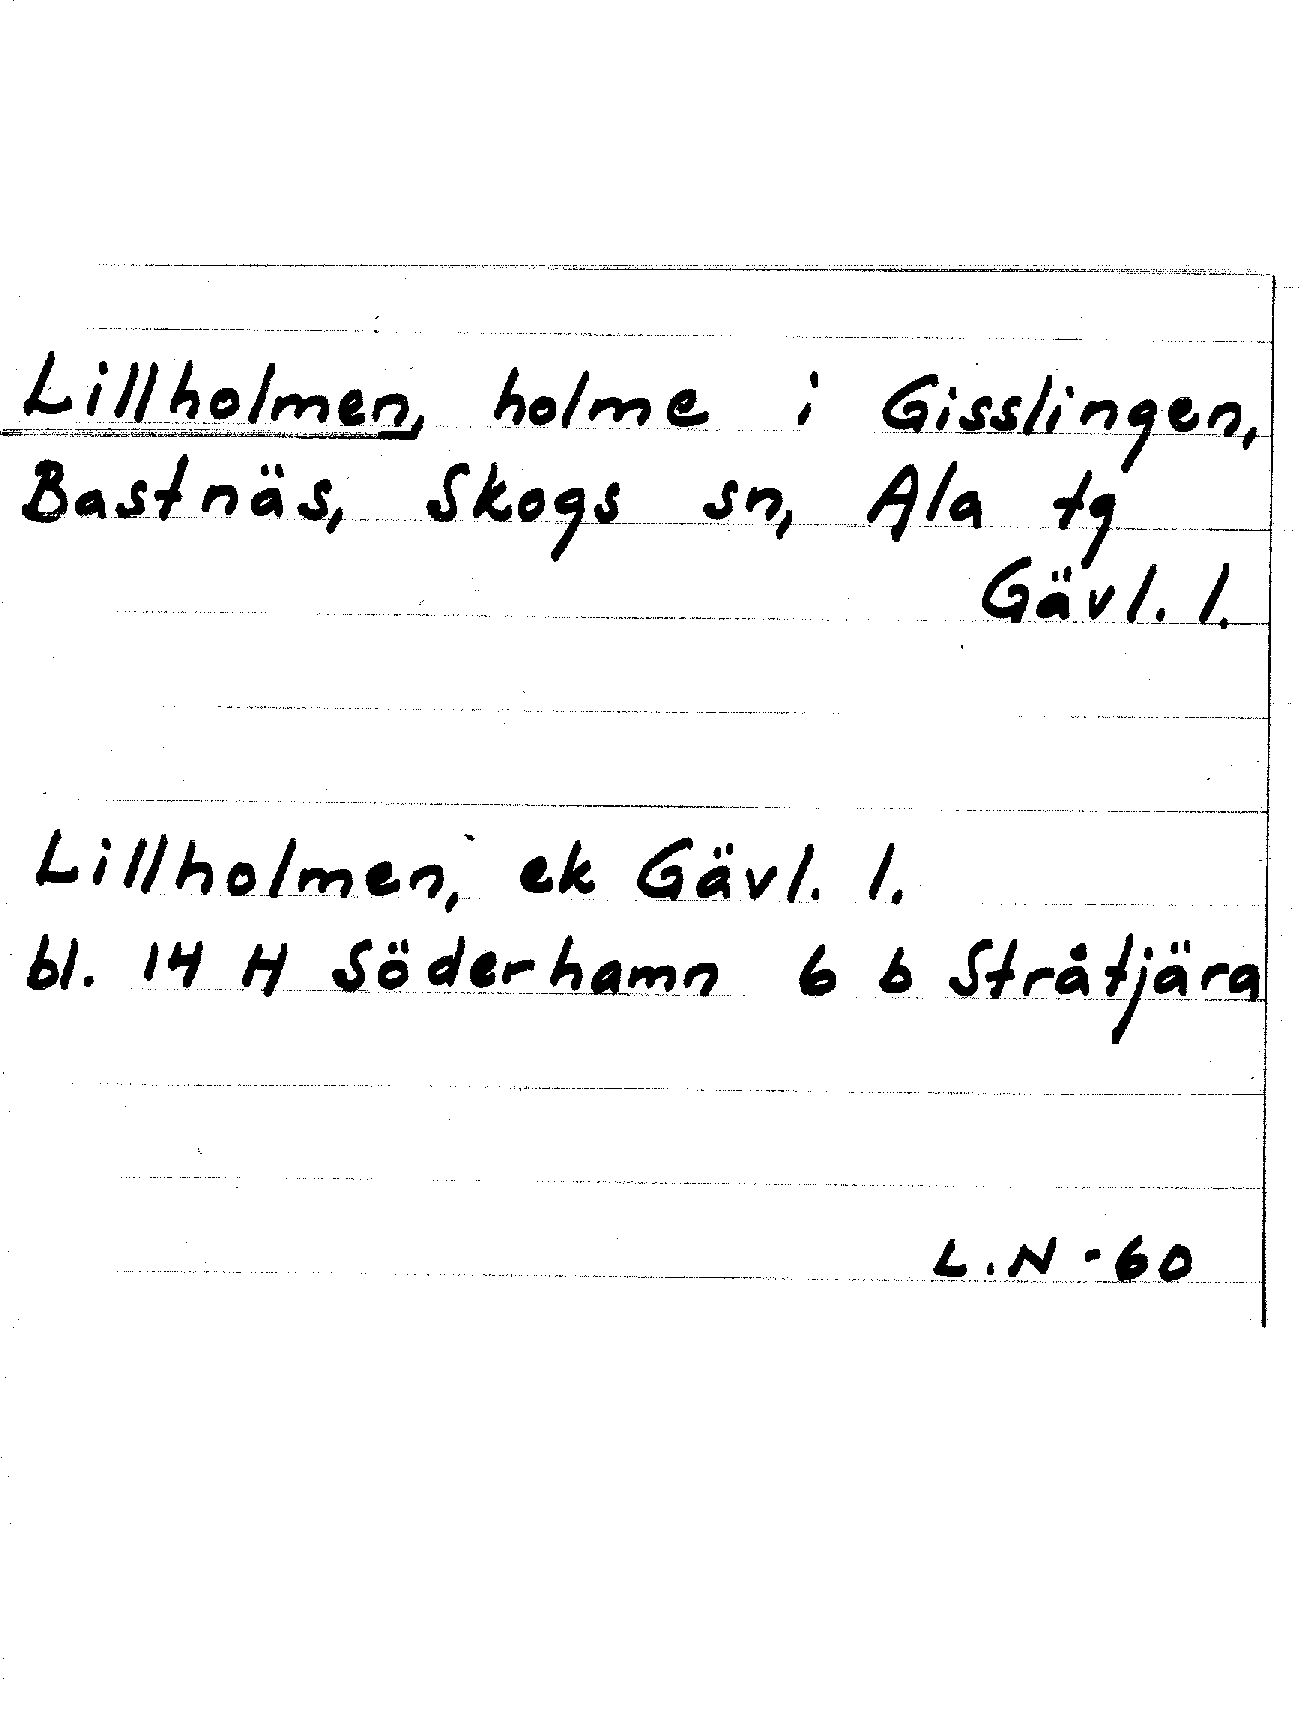 Lillholmen, holme i Gisslingen,
Bastnäs, Skogs sn, Ala tg
Gävl. l.
Lillholmen, ek Gävl. l.
bl. 14 H Söderhamn 6 b Stråtjära
L.N -60